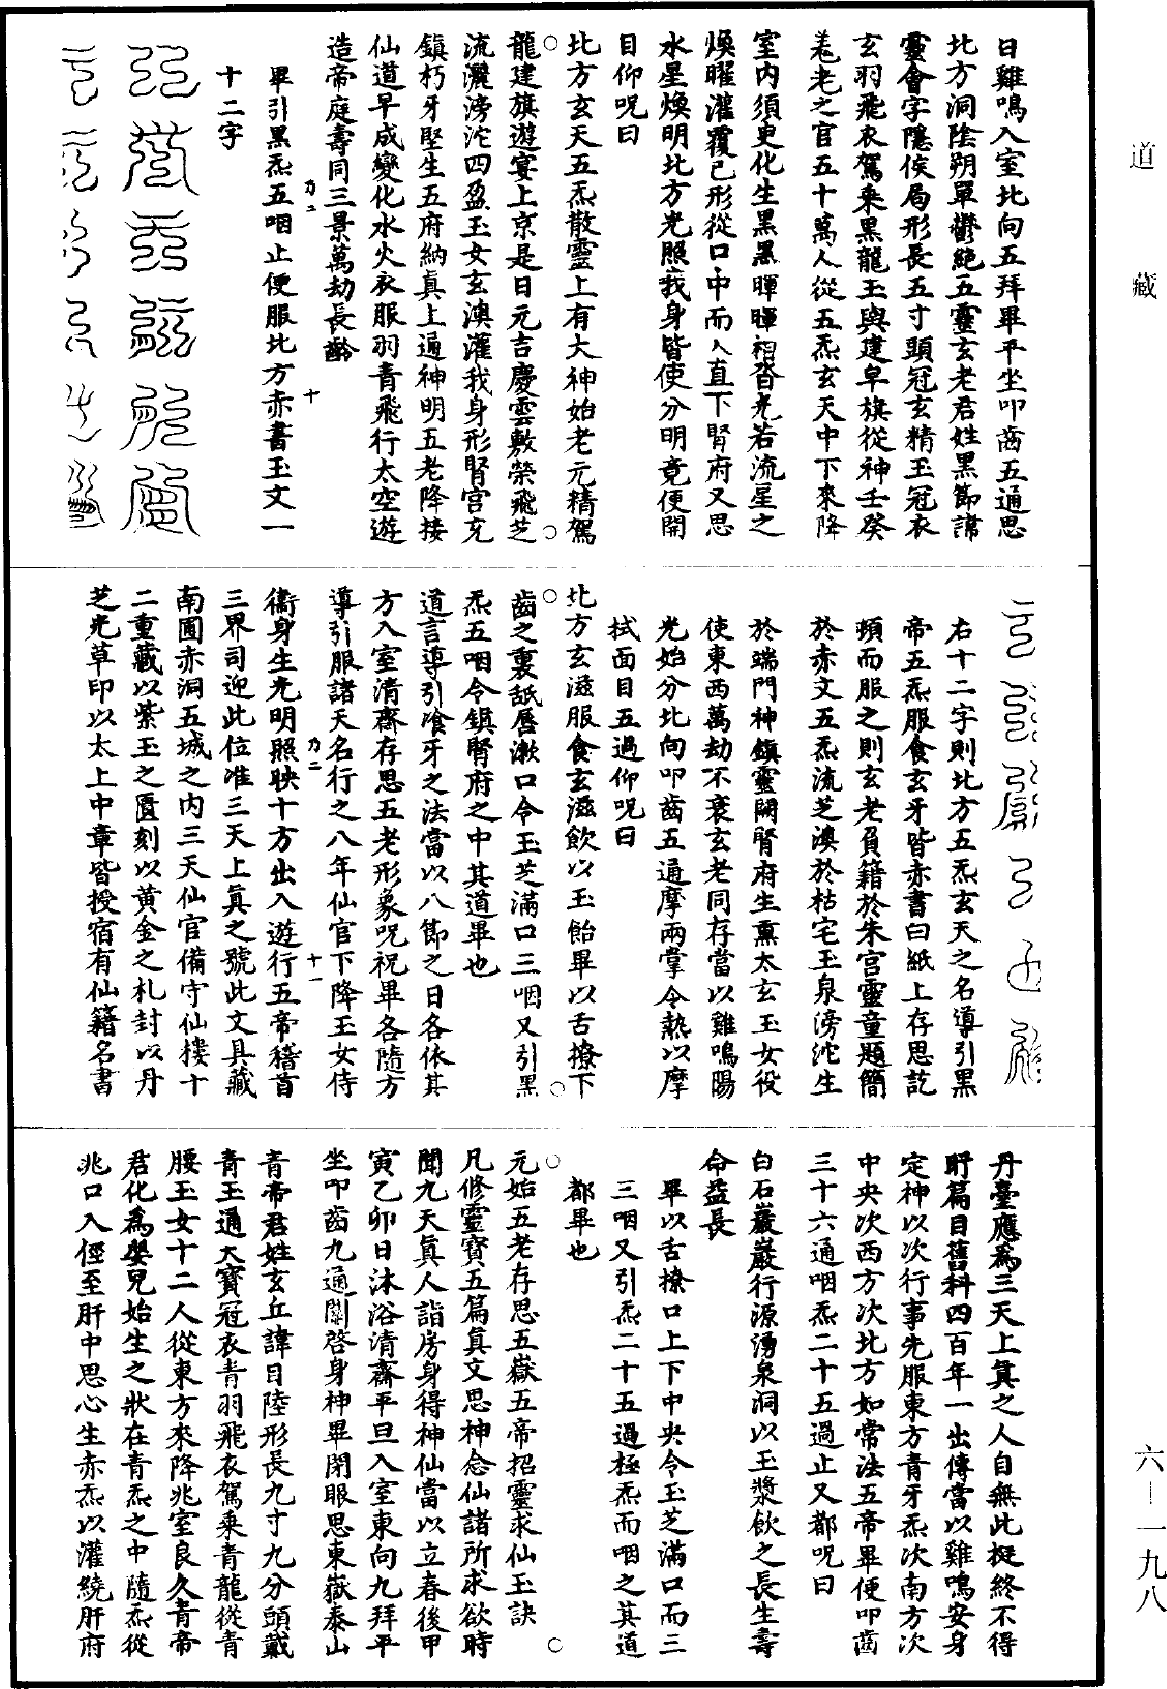 道藏
日雞鳴入室北向五拜畢平坐叩齒五通思
北方洞陰朔單鬱絕五靈玄老君姓黑節諱
靈會字隱侯局形長五寸頭冠玄精玉冠衣
玄羽飛衣駕乘黑龍玉輿建皁旗從神壬癸
羗老之官五十萬人從五炁玄天中下來降
室內須臾化生黑黑暉暉相沓光若流星之
煥曜灌覆己形從口中而入直下腎府又思
水星煥明北方光照我身皆使分明竟便開
目仰呪曰
北方玄天五炁散靈上有大神始老元精駕
龍建旗遊宴上京是日元吉慶雲敷榮飛芝
流灑滂沱四盈玉女玄澳灌我身形腎宮充
鎮朽牙堅生五府納真上通神明五老降接
仙道早成變化水火衣服羽青飛行太空遊
造帝庭壽同三景萬劫長齡
畢引黑炁五咽止便服北方赤書玉文一
十二字
力二
十
右十二字則北方五炁玄天之名導引黑
帝五炁服食玄牙皆赤書曰紙上存思訖
頭而服之則玄老負籍於朱宮靈童題簡
於赤文五炁流芝澳於枯宅玉泉滂沱生
於端門神鎮靈闕腎府生熏太玄玉女役
使東西萬劫不衰玄老同存當以雞鳴陽
光始分北向叩齒五通摩兩掌令熱以摩
拭面目五過仰呪曰
北方玄滋服食玄滋飲以玉飴畢以舌撩下
齒之裏舐唇漱口令玉芝滿口三咽又引黑
炁五咽令鎮腎府之中其道畢也
道言導引飡牙之法當以八節之日各依其
方入室清齋存思五老形象呪祝畢各隨方
導引服諸天名行之八年仙官下降玉女侍
力二
十一
衞身生光明照映十方出入遊行五帝稽首
三界司迎此位准三天上真之號此文具藏
南圃赤洞五城之內三天仙官備守仙樓十
二重藏以紫玉之匱刻以黃金之札封以丹
芝光草印以太上中章皆授宿有仙籍名書
丹臺應為三天上真之人自無此挺終不得
盱篇目舊科四百年一出傳當以雞鳴安身
定神以次行事先服東方青牙炁次南方次
中央次西方次北方如常法五帝畢便叩齒
三十六通咽炁二十五過止又都呪曰
白石巖巖行源湧泉洞以玉漿飲之長生壽
命益長
畢以舌撩口上下中央令玉芝滿口而三
三咽又引炁二十五過極炁而咽之其道
都畢也
元始五老存思五嶽五帝招靈求仙玉訣
凡修靈寶五篇真文思神念仙諸所求欲時
聞九天真人詣房身得神仙當以立春後甲
寅乙卯日沐浴清齋平旦入室東向九拜平
坐叩齒九通關啓身神畢閉眼思東嶽泰山
青帝君姓玄丘諱目陸形長九寸九分頭戴
青玉通天寶冠衣青羽飛衣駕乘青龍從青
腰玉女十二人從東方來降兆室良久青帝
君化為嬰兒始生之狀在青炁之中隨炁從
兆口入俓至肝中思心生赤炁以灌繞肝府
六-一九八